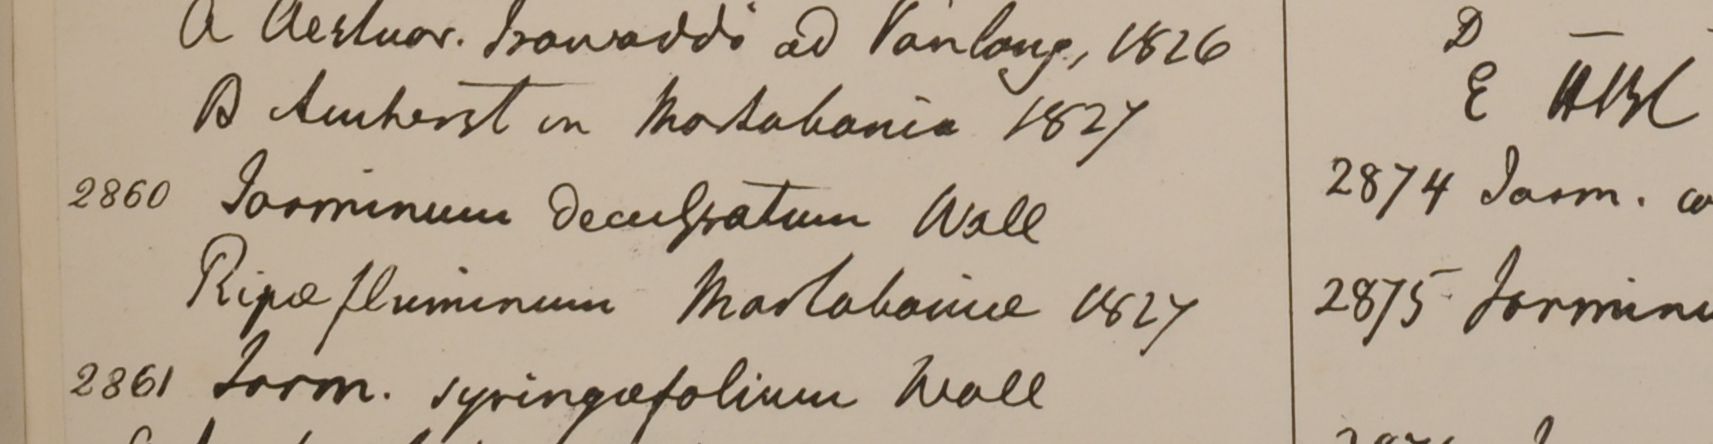 A Aestuar. Irawaddi ad Yanlang, 1826
B Amherst in Martabania 1827
2860 Jasminum decussatum Wall
Ripæ fluminum Martabaniæ 1827
2861 Jasm. syringæfolium Wall
D —
E HBC
2874 Jasm.
2875 Jasminu